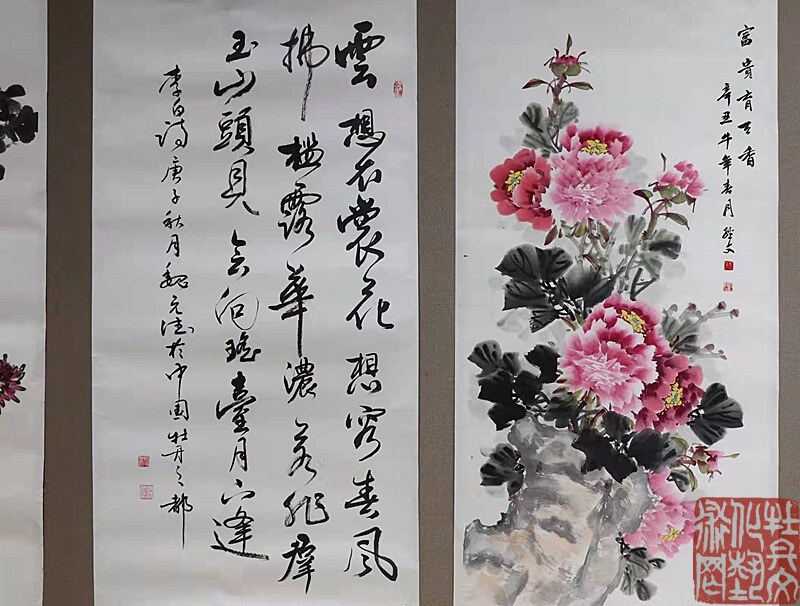 雲想衣裳花想容春風
拂檻露華濃若非群
玉山頭見会向瑤臺月下逢
李白詩庚子秋月魏元法於中国牡丹之都
富貴有天香
辛丑牛年春月
牡丹文
化藝
術网